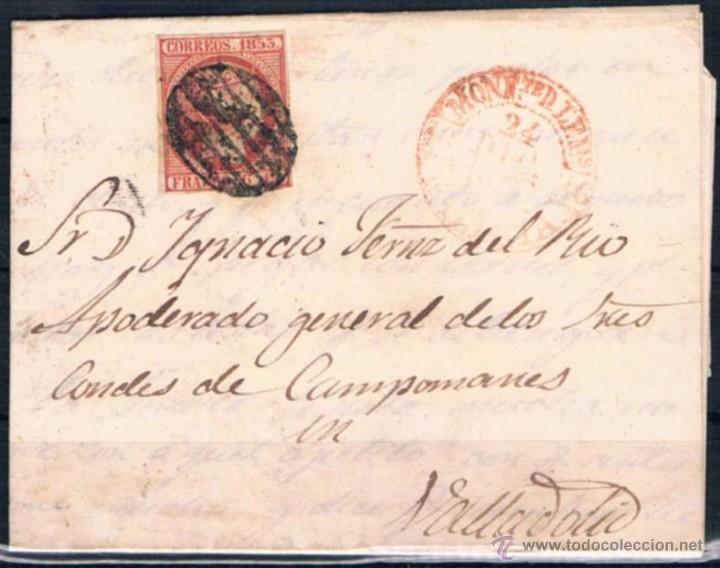 CORREOS. 1853.
24
DIC
Sr D Ignacio Fernz del Rio
Apoderado general de los Sres
Condes de Campomanes
en
Valladolid
www.todocoleccion.net